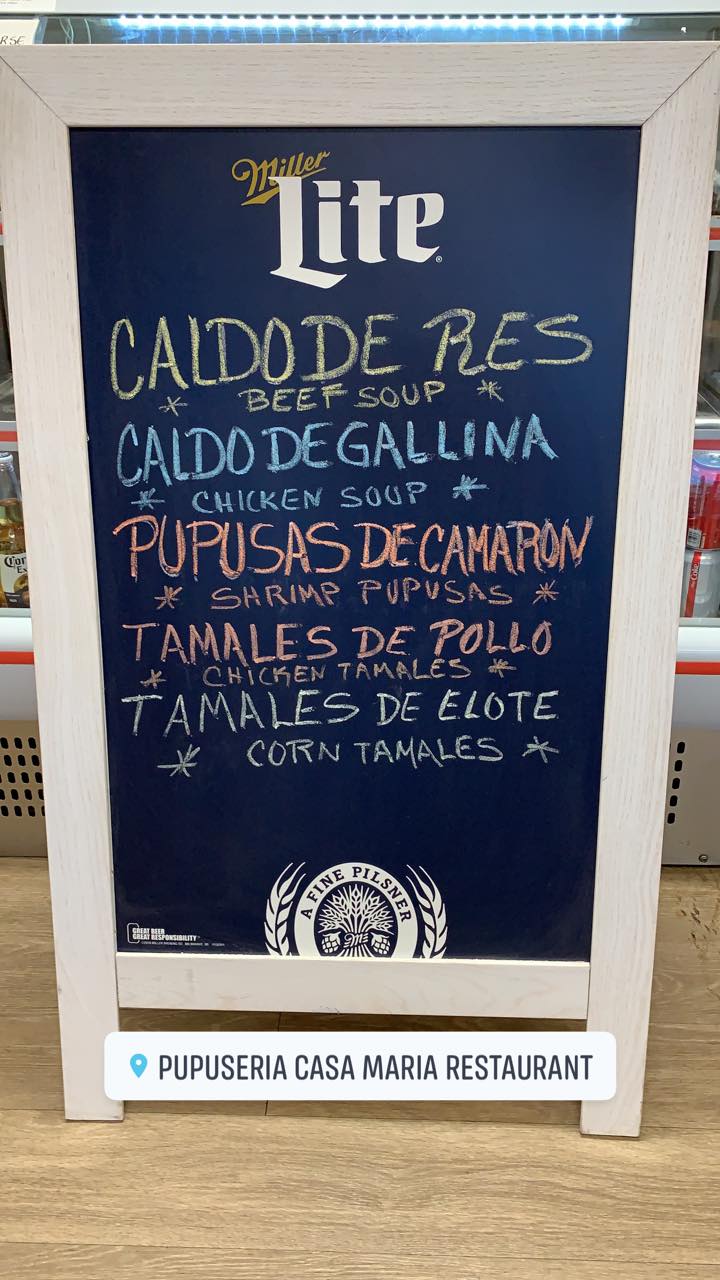 RSE
Miller
Lite
CALDO DE RES
* BEEF SOUP *
CALDO DE GALLINA
* CHICKEN SOUP *
PUPUSAS DE CAMARON
* SHRIMP PUPUSAS *
TAMALES DE POLLO
* CHICKEN TAMALES *
TAMALES DE ELOTE
* CORN TAMALES *
A FINE PILSNER
GREAT BEER
GREAT RESPONSIBILITY
PUPUSERIA CASA MARIA RESTAURANT